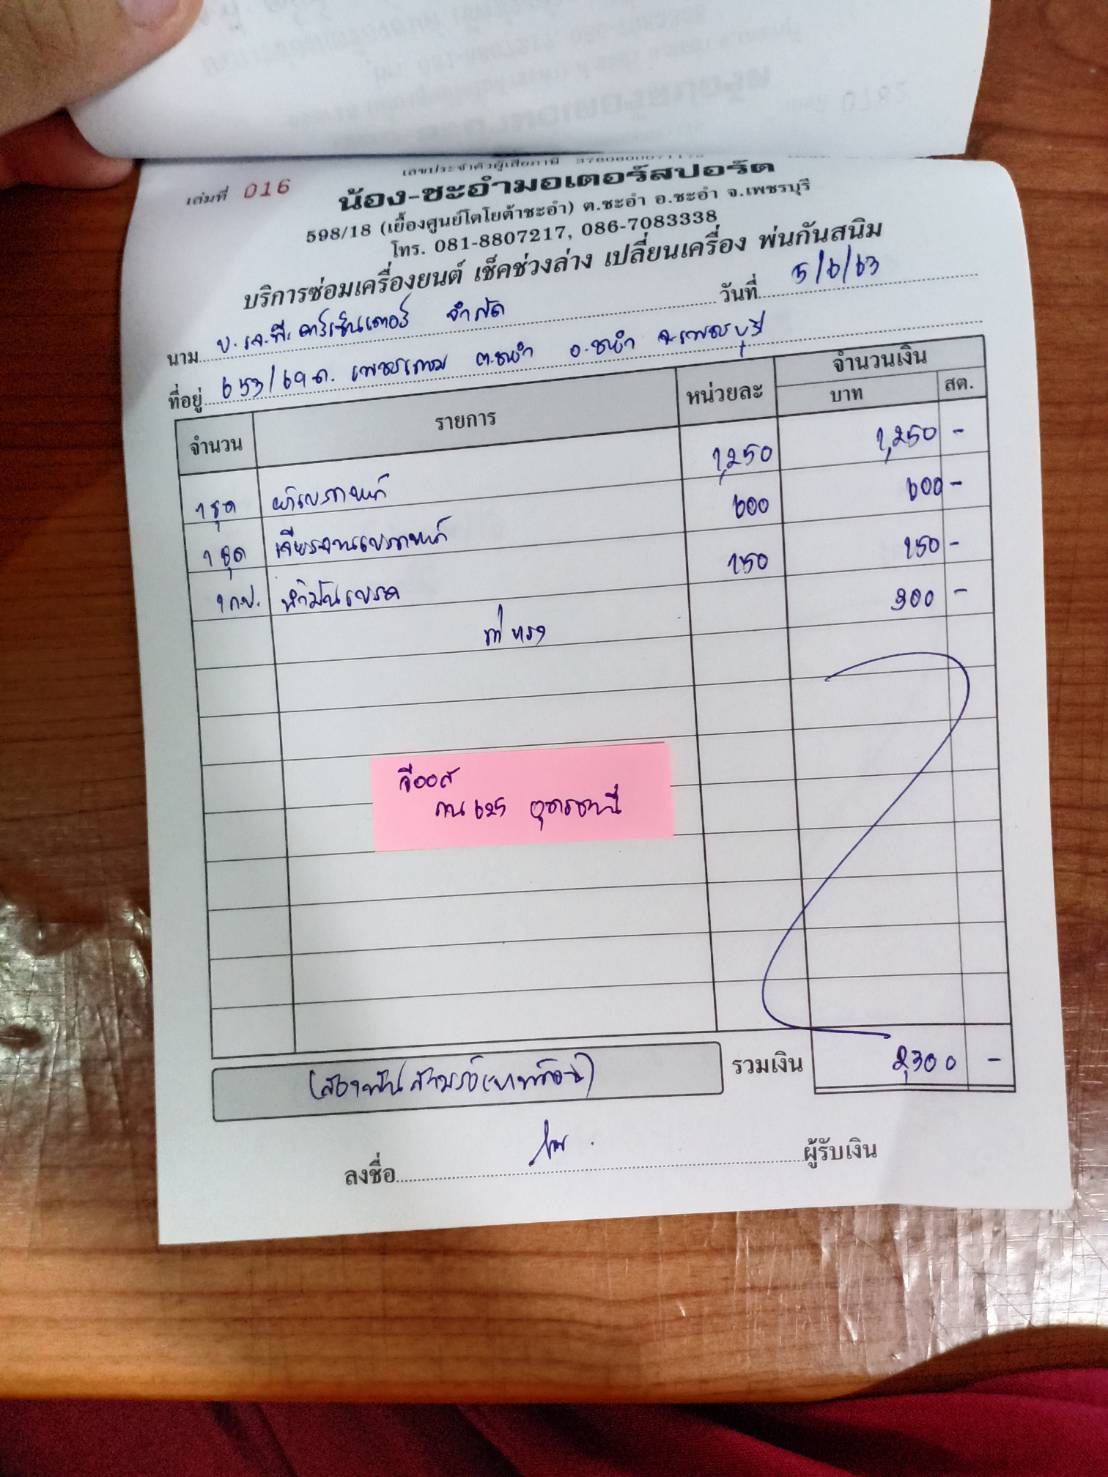 เล่มที่ 016
เลขประจำตัวผู้เสียภาษี
น้อง-ชะอำมอเตอร์สปอร์ต
598/18 (เยื้องศูนย์โตโยต้าชะอำ) ต.ชะอำ อ.ชะอำ จ.เพชรบุรี
โทร. 081-8807217, 086-7083338
บริการซ่อมเครื่องยนต์ เช็คช่วงล่าง เปลี่ยนเครื่อง พ่นกันสนิม
วันที่ 5/6/63
นาม บ. เจ.พี. คาร์เซ็นเตอร์ จำกัด
ที่อยู่ 653/69 ถ. เพชรเกษม ต.ชะอำ อ.ชะอำ จ.เพชรบุรี
จำนวน รายการ หน่วยละ จำนวนเงิน
บาท สต.
1 ชุด ผ้าเบรกหน้า 1,250 1,250 -
1 ชุด เจียรจานเบรกหน้า 600 600 -
1 กป. น้ำมันเบรค 150 150 -
ค่าแรง 300 -
วีออส
กน 625 อุดรธานี
รวมเงิน 2,300 -
ลงชื่อ ผู้รับเงิน